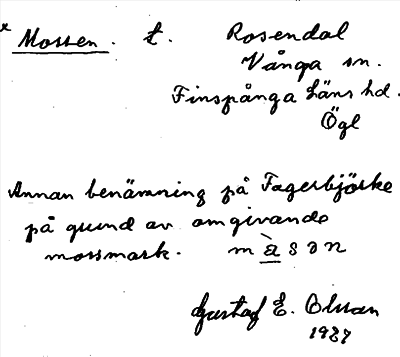 x Mossen. t. Rosendal
Vånga sn.
Finspånga läns hd.
Ögl
Annan benämning på Fagerbjörke
på grund av omgivande
mossmark. màsən
Gustaf E. Olsson
1937